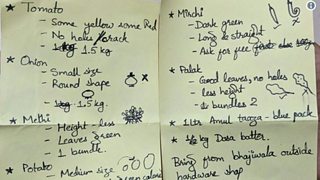 * Tomato
- Some yellow some Red
- No holes / crack
- 1.5 kg
* Onion
- Small size
- Round shape
- 1.5 kg.
* Methi
- Height - less
- Leaves green
- 1 bundle.
* Potato - Medium size
* Mirchi
- Dark green
- Long & straight
- Ask for free
* Palak
- Good leaves, no holes
- less height
- bundles 2
* 1 Ltr Amul taaza - blue pack
* kg Dosa batter.
Bring from bhajiwala outside
hardware shop